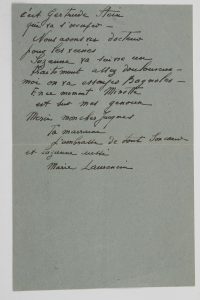 c'est Gertrude Stein
qui va s'occuper —
Nous avons vu docteur
pour les veines
Suzanne va suivre un
traitement assez douloureux —
moi on va essayer Bagnoles —
En ce moment Minette
est sur mes genoux
Merci mon cher Jacques
Ta marraine
t'embrasse de tout son cœur
et Suzanne aussi
Marie Laurencin